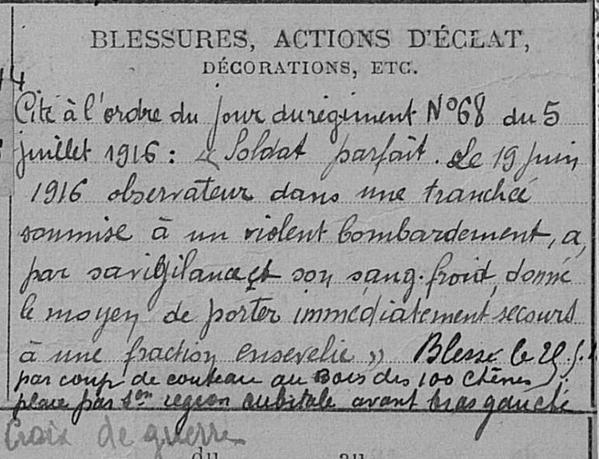 BLESSURES, ACTIONS D'ÉCLAT,
DÉCORATIONS, ETC.
Cité à l'ordre du jour du régiment N°68 du 5
juillet 1916 : « Soldat parfait. Le 19 juin
1916 observateur dans une tranchée
soumise à un violent bombardement, a,
par sa vigilance et son sang-froid, donné
le moyen de porter immédiatement secours
à une fraction ensevelie » Blessé le
par coup de couteau au Bois des 100 Chênes
plaie region cubitale avant bras gauche
Croix de guerre
du au